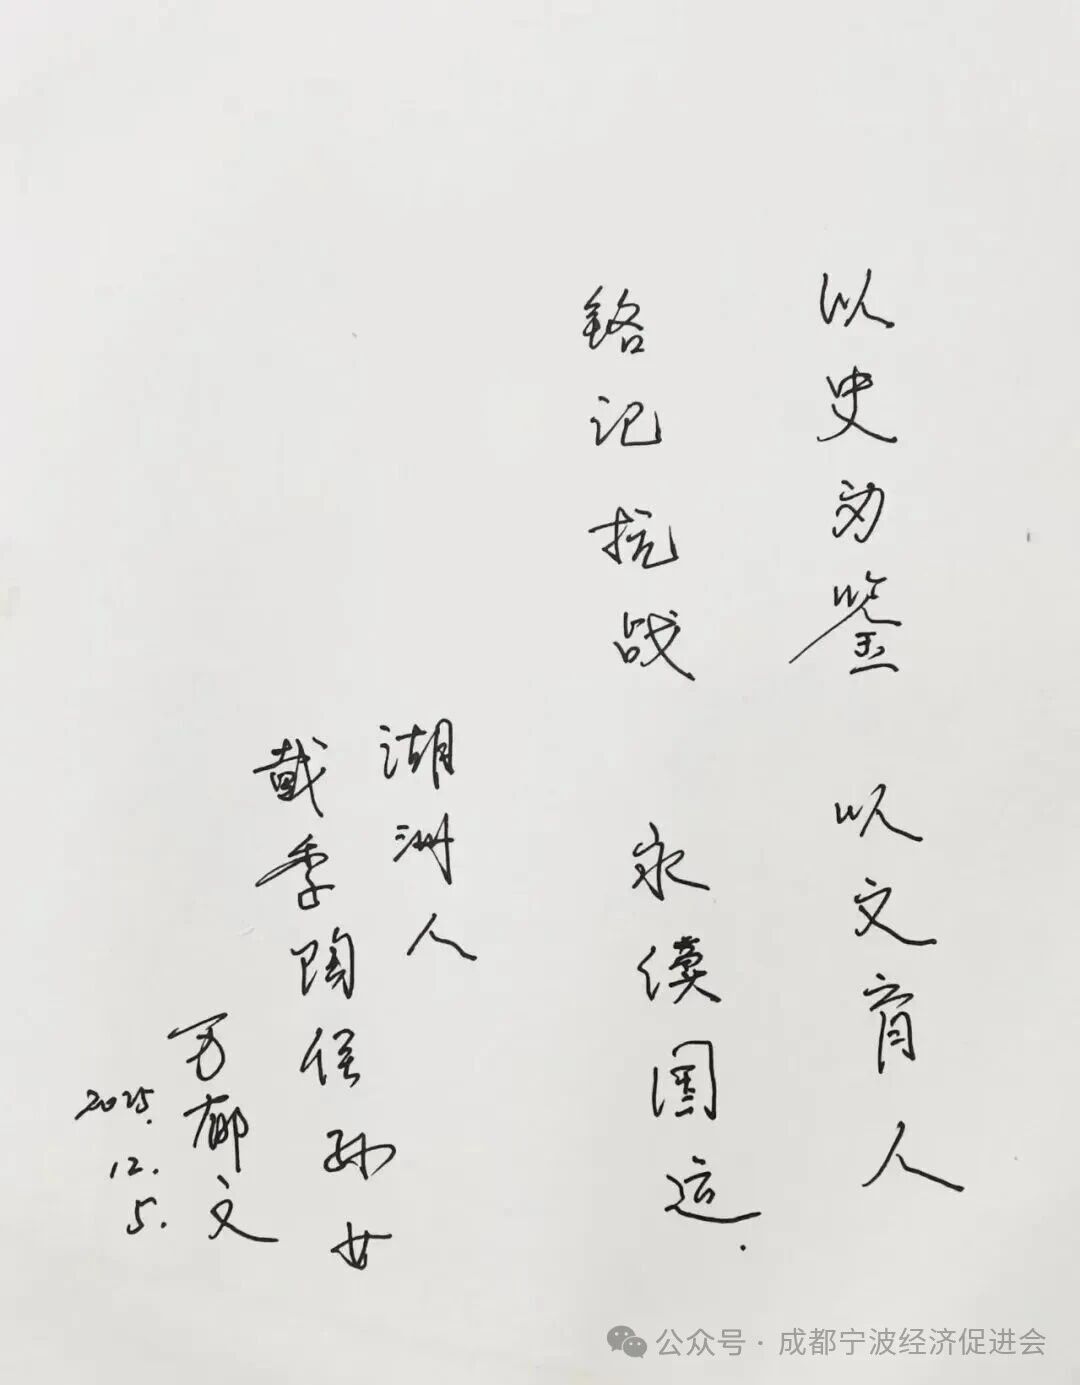 以史为鉴 以文育人
铭记抗战 永续国运.
湖洲人
戴季陶侄孙女
万郁文
2025.
12.
5.
公众号 · 成都宁波经济促进会